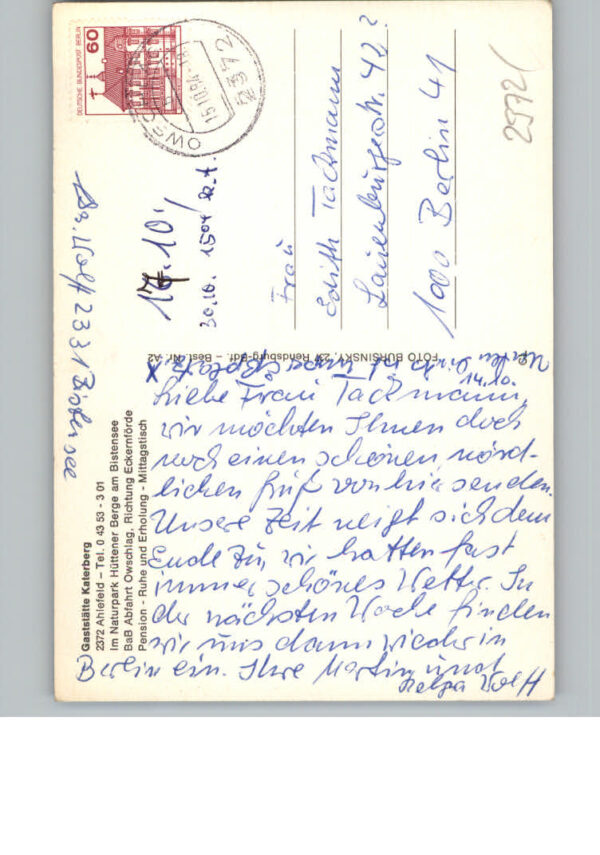 Gaststätte Katerberg
2372 Ahlefeld – Tel. 0 43 53 - 3 01
Im Naturpark Hüttener Berge am Bistensee
BaB Abfahrt Owschlag, Richtung Eckernförde
Pension - Ruhe und Erholung - Mittagstisch
FOTO BURSINSKY, 237 Rendsburg-Bdf. – Best. Nr. A2
DEUTSCHE BUNDESPOST BERLIN
60
15.10.
2372
2572
17.10.
30.10.
Frau
Edith Tackmann
Lauenburgerstr. 42?
1000 Berlin 41
2331 Bistensee
14.10.
Liebe Frau Tackmann,
wir möchten Ihnen doch
noch einen schönen nörd-
lichen Gruß von hier senden.
Unsere Zeit neigt sich dem
Ende zu, wir hatten fast
immer schönes Wetter. In
der nächsten Woche finden
wir uns dann wieder in
Berlin ein. Ihre Martin und
Helga Wolff